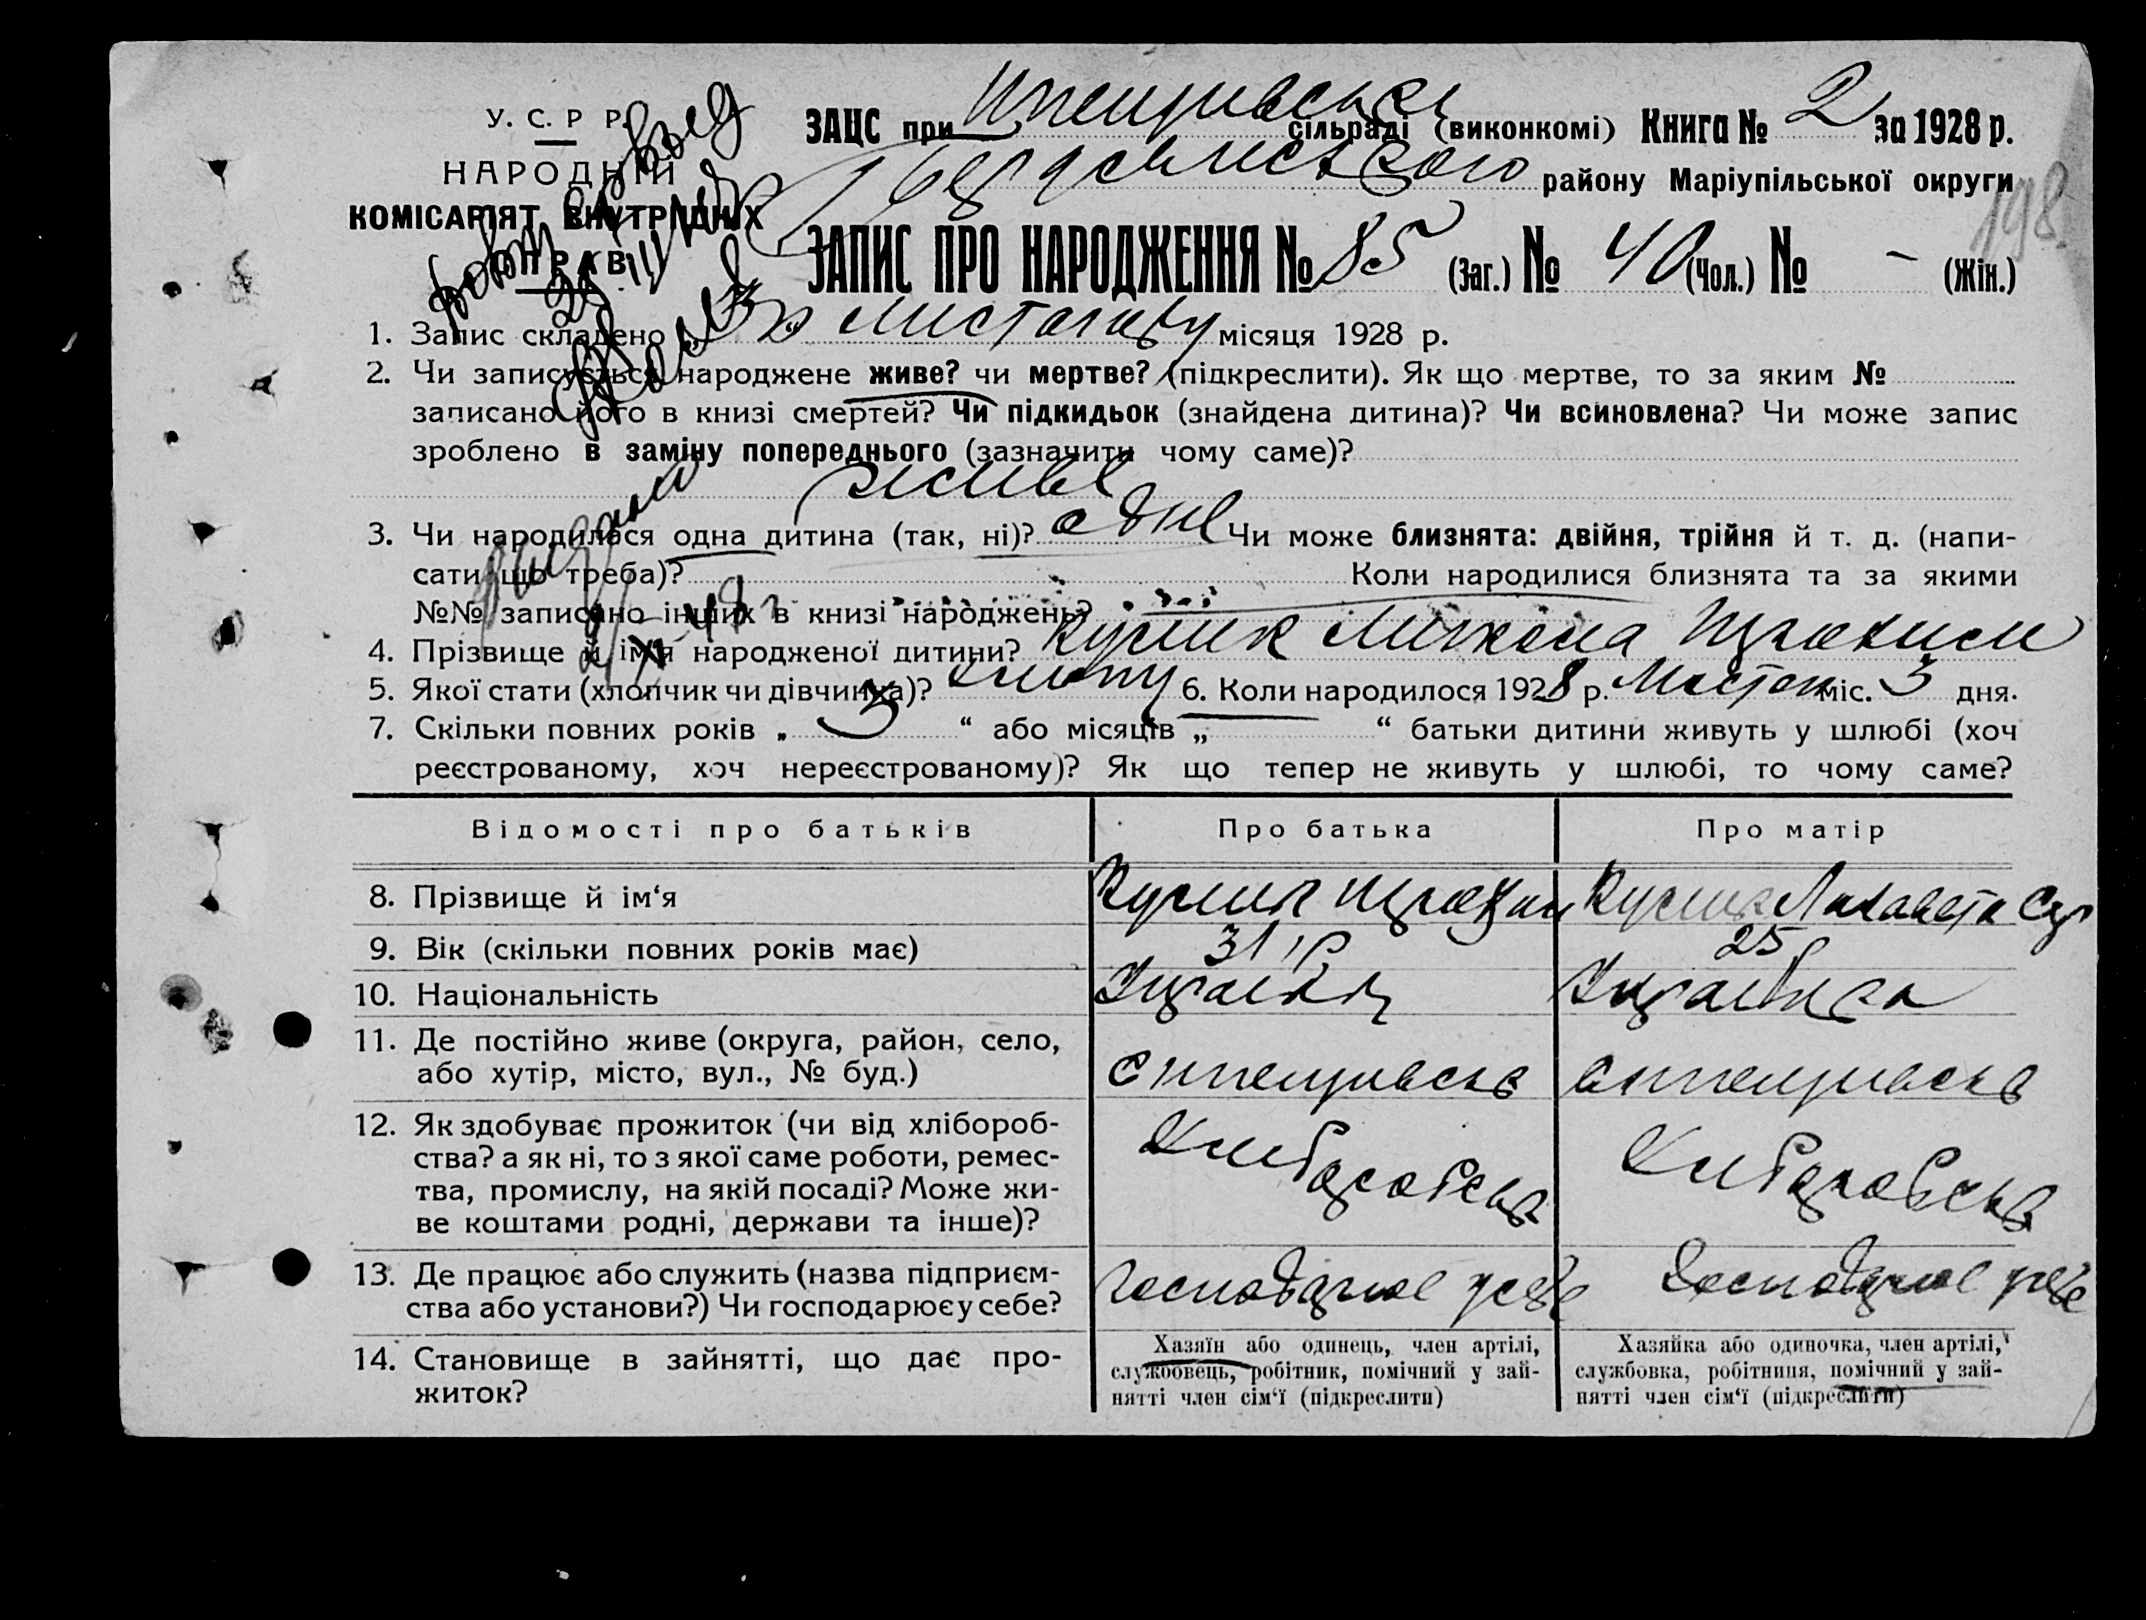 У. С. Р Р.
НАРОДНІЙ
КОМІСАРІЯТ ВНУТРІШНІХ
СПРАВ
ЗАЦС при сільраді (виконкомі) Книга № 2 за 1928 р.
району Маріупільської округи
198
ЗАПИС ПРО НАРОДЖЕННЯ № 85 (Заг.) № 40 (Чол.) № - (Жін.)
1. Запис складено „3" листопаду місяця 1928 р.
2. Чи записується народжене живе? чи мертве? (підкреслити). Як що мертве, то за яким №
записано його в книзі смертей? Чи підкидьок (знайдена дитина)? Чи всиновлена? Чи може запис
зроблено в заміну попереднього (зазначити чому саме)?
живе
3. Чи народилася одна дитина (так, ні)? одне Чи може близнята: двійня, трійня й т. д. (напи-
сати що треба)? Коли народилися близнята та за якими
№№ записано інших в книзі народжень?
4. Прізвище й ім'я народженої дитини? Микола
5. Якої стати (хлопчик чи дівчинка)? 6. Коли народилося 1928 р. Листоп міс. 3 дня.
7. Скільки повних років „ 3 “ або місяців „ “ батьки дитини живуть у шлюбі (хоч
реєстрованому, хоч нереєстрованому)? Як що тепер не живуть у шлюбі, то чому саме?
Відомості про батьків Про батька Про матір
8. Прізвище й ім‘я
9. Вік (скільки повних років має) 31 р. 25
10. Національність Українець Українка
11. Де постійно живе (округа, район, село,
або хутір, місто, вул., № буд.)
12. Як здобуває прожиток (чи від хлібороб-
ства? а як ні, то з якої саме роботи, ремес-
тва, промислу, на якій посаді? Може жи-
ве коштами родні, держави та інше)?
Хліборобство Хліборобство
13. Де працює або служить (назва підприєм-
ства або установи?) Чи господарює у себе?
Господарює у себе Господарює у себе
14. Становище в зайнятті, що дає про-
житок?
Хазяїн або одинець, член артілі,
службовець, робітник, помічний у зай-
нятті член сім‘ї (підкреслити)
Хазяйка або одиночка, член артілі,
службовка, робітниця, помічний у зай-
нятті член сім‘ї (підкреслити)